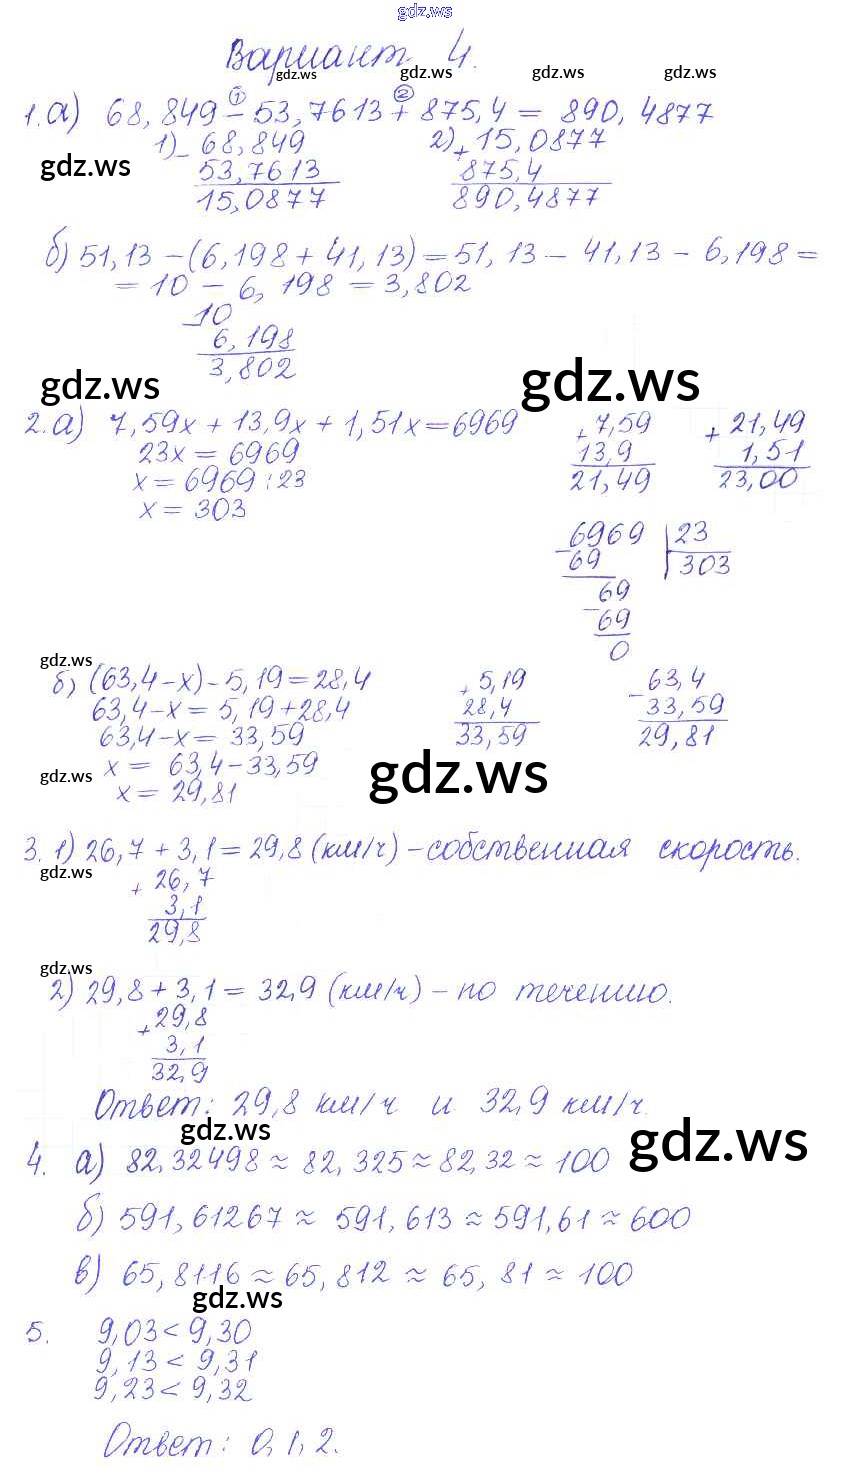 gdz.ws
Вариант 4.
gdz.ws gdz.ws gdz.ws
1. а) 68,849 - 53,7613 + 875,4 = 890,4877
① ②
1) - 68,849 2) + 15,0877
gdz.ws
53,7613 875,4
15,0877 890,4877
б) 51,13 - (6,198 + 41,13) = 51,13 - 41,13 - 6,198 =
= 10 - 6,198 = 3,802
- 10
6,198
3,802
gdz.ws gdz.ws
2. а) 7,59x + 13,9x + 1,51x = 6969 + 7,59 + 21,49
23x = 6969 13,9 1,51
x = 6969 : 23 21,49 23,00
x = 303
- 6969 | 23
69 303
69
- 69
0
gdz.ws
б) (63,4 - x) - 5,19 = 28,4 + 5,19 - 63,4
63,4 - x = 5,19 + 28,4 28,4 33,59
63,4 - x = 33,59 33,59 29,81
x = 63,4 - 33,59
gdz.ws gdz.ws
x = 29,81
3. 1) 26,7 + 3,1 = 29,8 (км/ч) - собственная скорость.
gdz.ws
+ 26,7
3,1
29,8
gdz.ws
2) 29,8 + 3,1 = 32,9 (км/ч) - по течению.
+ 29,8
3,1
32,9
Ответ: 29,8 км/ч и 32,9 км/ч.
gdz.ws gdz.ws
4. а) 82,32498 ≈ 82,325 ≈ 82,32 ≈ 100
б) 591,61267 ≈ 591,613 ≈ 591,61 ≈ 600
в) 65,8116 ≈ 65,812 ≈ 65,81 ≈ 100
gdz.ws
5. 9,03 < 9,30
9,13 < 9,31
9,23 < 9,32
Ответ: 0, 1, 2.